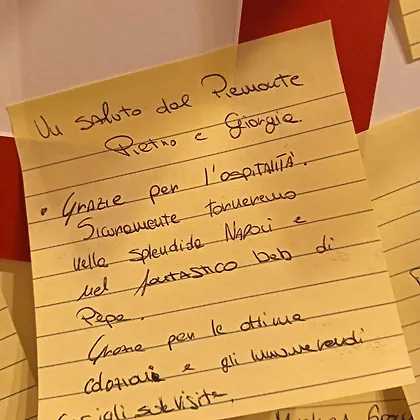 Un saluto dal Piemonte
Pietro e Giorgia.
• Grazie per l'OSPITALITÀ.
Sicuramente torneremo
nella splendida NAPOLI e
nel fantastico beb di
Pepe.
Grazie per le ottime
colazioni e gli innumerevoli
consigli sulle visite.